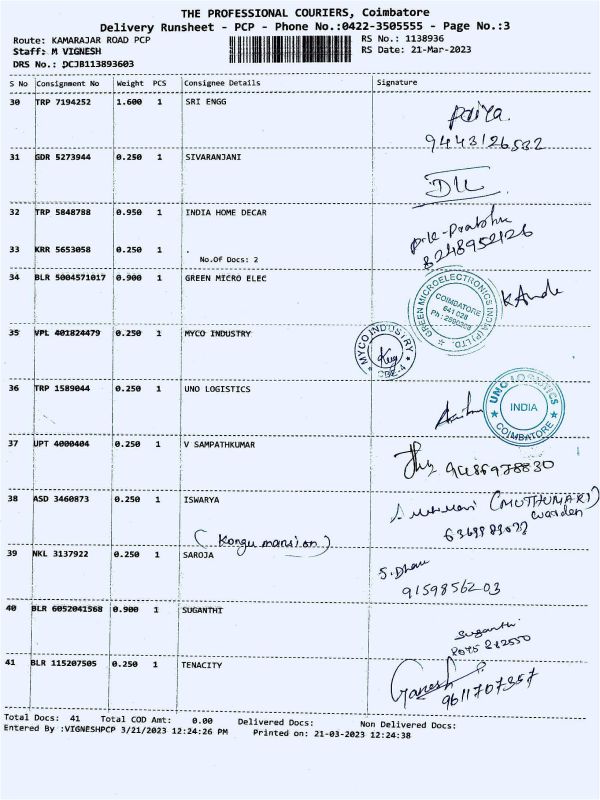 THE PROFESSIONAL COURIERS, Coimbatore
Delivery Runsheet - PCP - Phone No.:0422-3505555 - Page No.:3
Route: KAMARAJAR ROAD PCP RS No.: 1138936
Staff: M VIGNESH RS Date: 21-Mar-2023
DRS No.: DCJB113893603
S No Consignment No Weight PCS Consignee Details Signature
30 TRP 7194252 1.600 1 SRI ENGG
9443126532
31 GDR 5273944 0.250 1 SIVARANJANI
32 TRP 5848788 0.950 1 INDIA HOME DECAR
8248952126
33 KRR 5653058 0.250 1 .
No.Of Docs: 2
34 BLR 5004571017 0.900 1 GREEN MICRO ELEC
GREEN MICROELECTRONICS INDIA (P) LTD.
COIMBATORE
641 028
35 VPL 401824479 0.250 1 MYCO INDUSTRY
MYCO INDUSTRY
CBE-4
36 TRP 1589044 0.250 1 UNO LOGISTICS
UNO LOGISTICS
INDIA
COIMBATORE
37 UPT 4000404 0.250 1 V SAMPATHKUMAR
9486978830
38 ASD 3460873 0.250 1 ISWARYA
(MUTHUMARI)
warden
(Kongu mansion)
39 NKL 3137922 0.250 1 SAROJA
9159856203
40 BLR 6052041568 0.900 1 SUGANTHI
Suganthi
41 BLR 115207505 0.250 1 TENACITY
Ganesh
9611707357
Total Docs: 41 Total COD Amt: 0.00 Delivered Docs: Non Delivered Docs:
Entered By :VIGNESHPCP 3/21/2023 12:24:26 PM Printed on: 21-03-2023 12:24:38